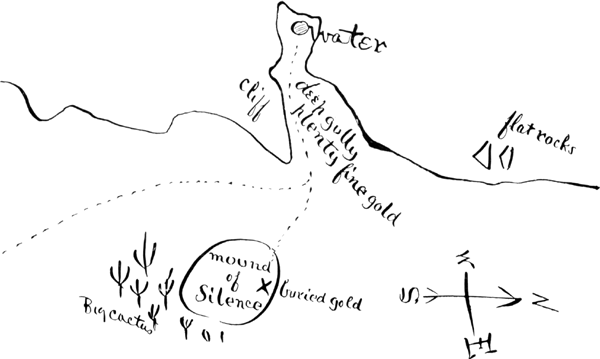 water
cliff
deep gully
plenty fine gold
flat rocks
mound
of
Silence
X
buried gold
Big cactus
S
N
E